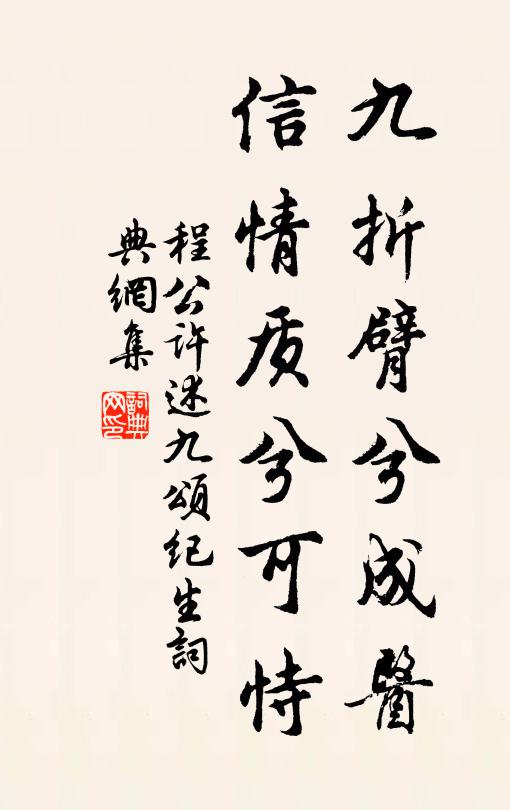 九折臂兮成醫
信情质兮可恃
程公许述九頌纪生詞
典網集
詞典網印